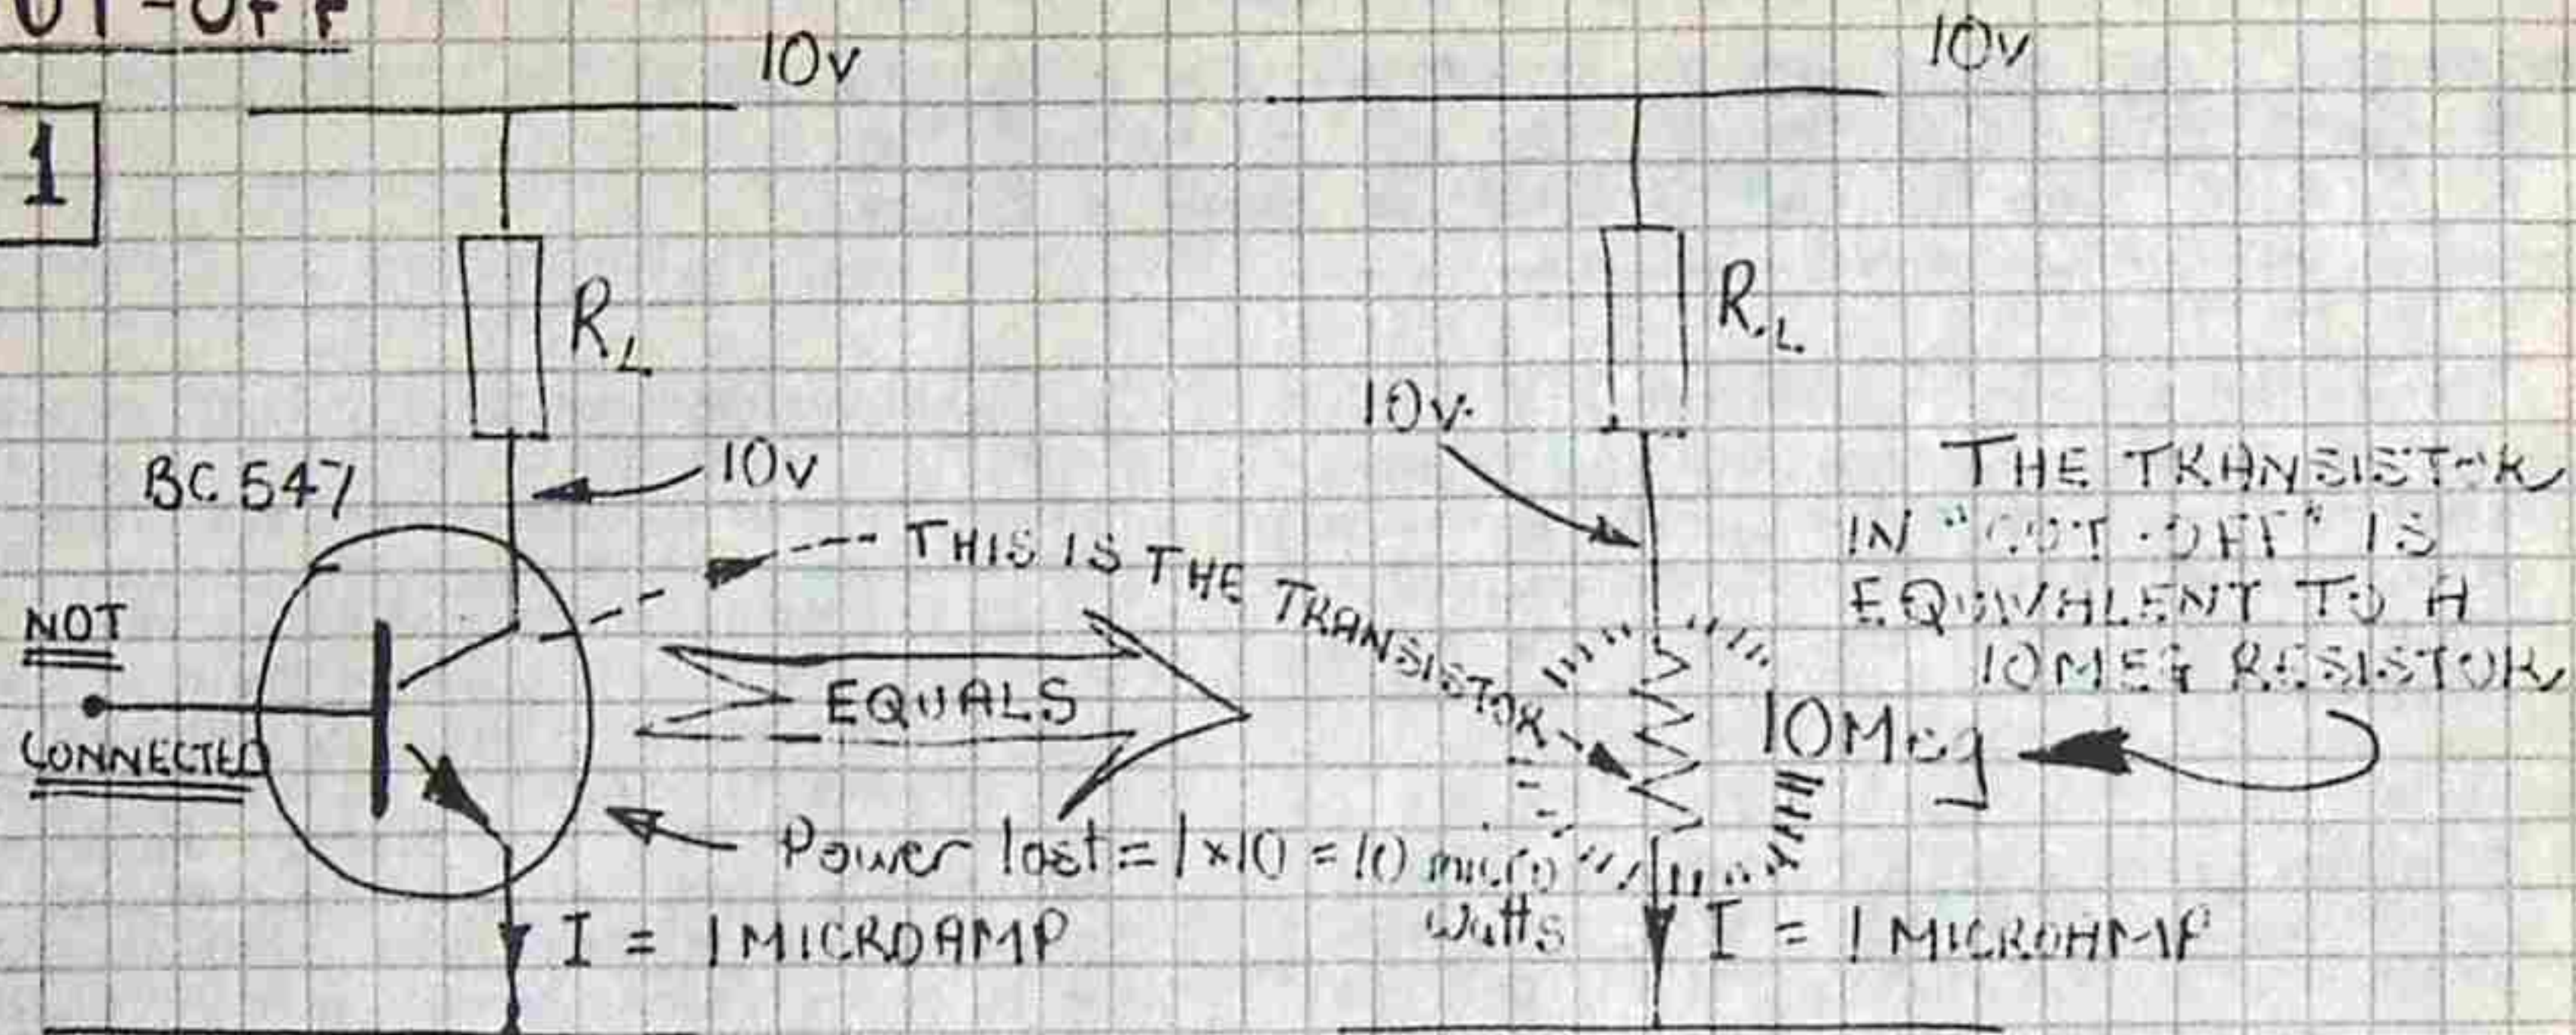 UT-OFF
1
10v
R_L
BC 547
10v
NOT
CONNECTED
THIS IS THE TRANSISTOR
EQUALS
Power lost = 1×10 = 10 micro
watts
I = 1 MICROAMP
10v
R.L.
10v.
THE TRANSISTOR
IN "CUT-OFF" IS
EQUIVALENT TO A
10MEG RESISTOR
10Meg
I = 1 MICROAMP